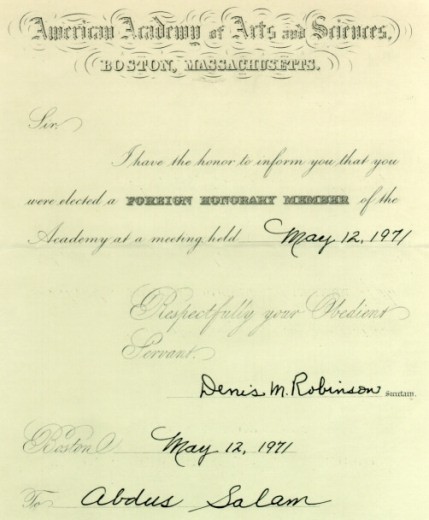 American Academy of Arts and Sciences,
BOSTON, MASSACHUSETTS.
Sir
I have the honor to inform you that you
were elected a FOREIGN HONORARY MEMBER of the
Academy at a meeting held May 12, 1971
Respectfully your Obedient
Servant.
Denis M. Robinson Secretary.
Boston May 12, 1971
To Abdus Salam